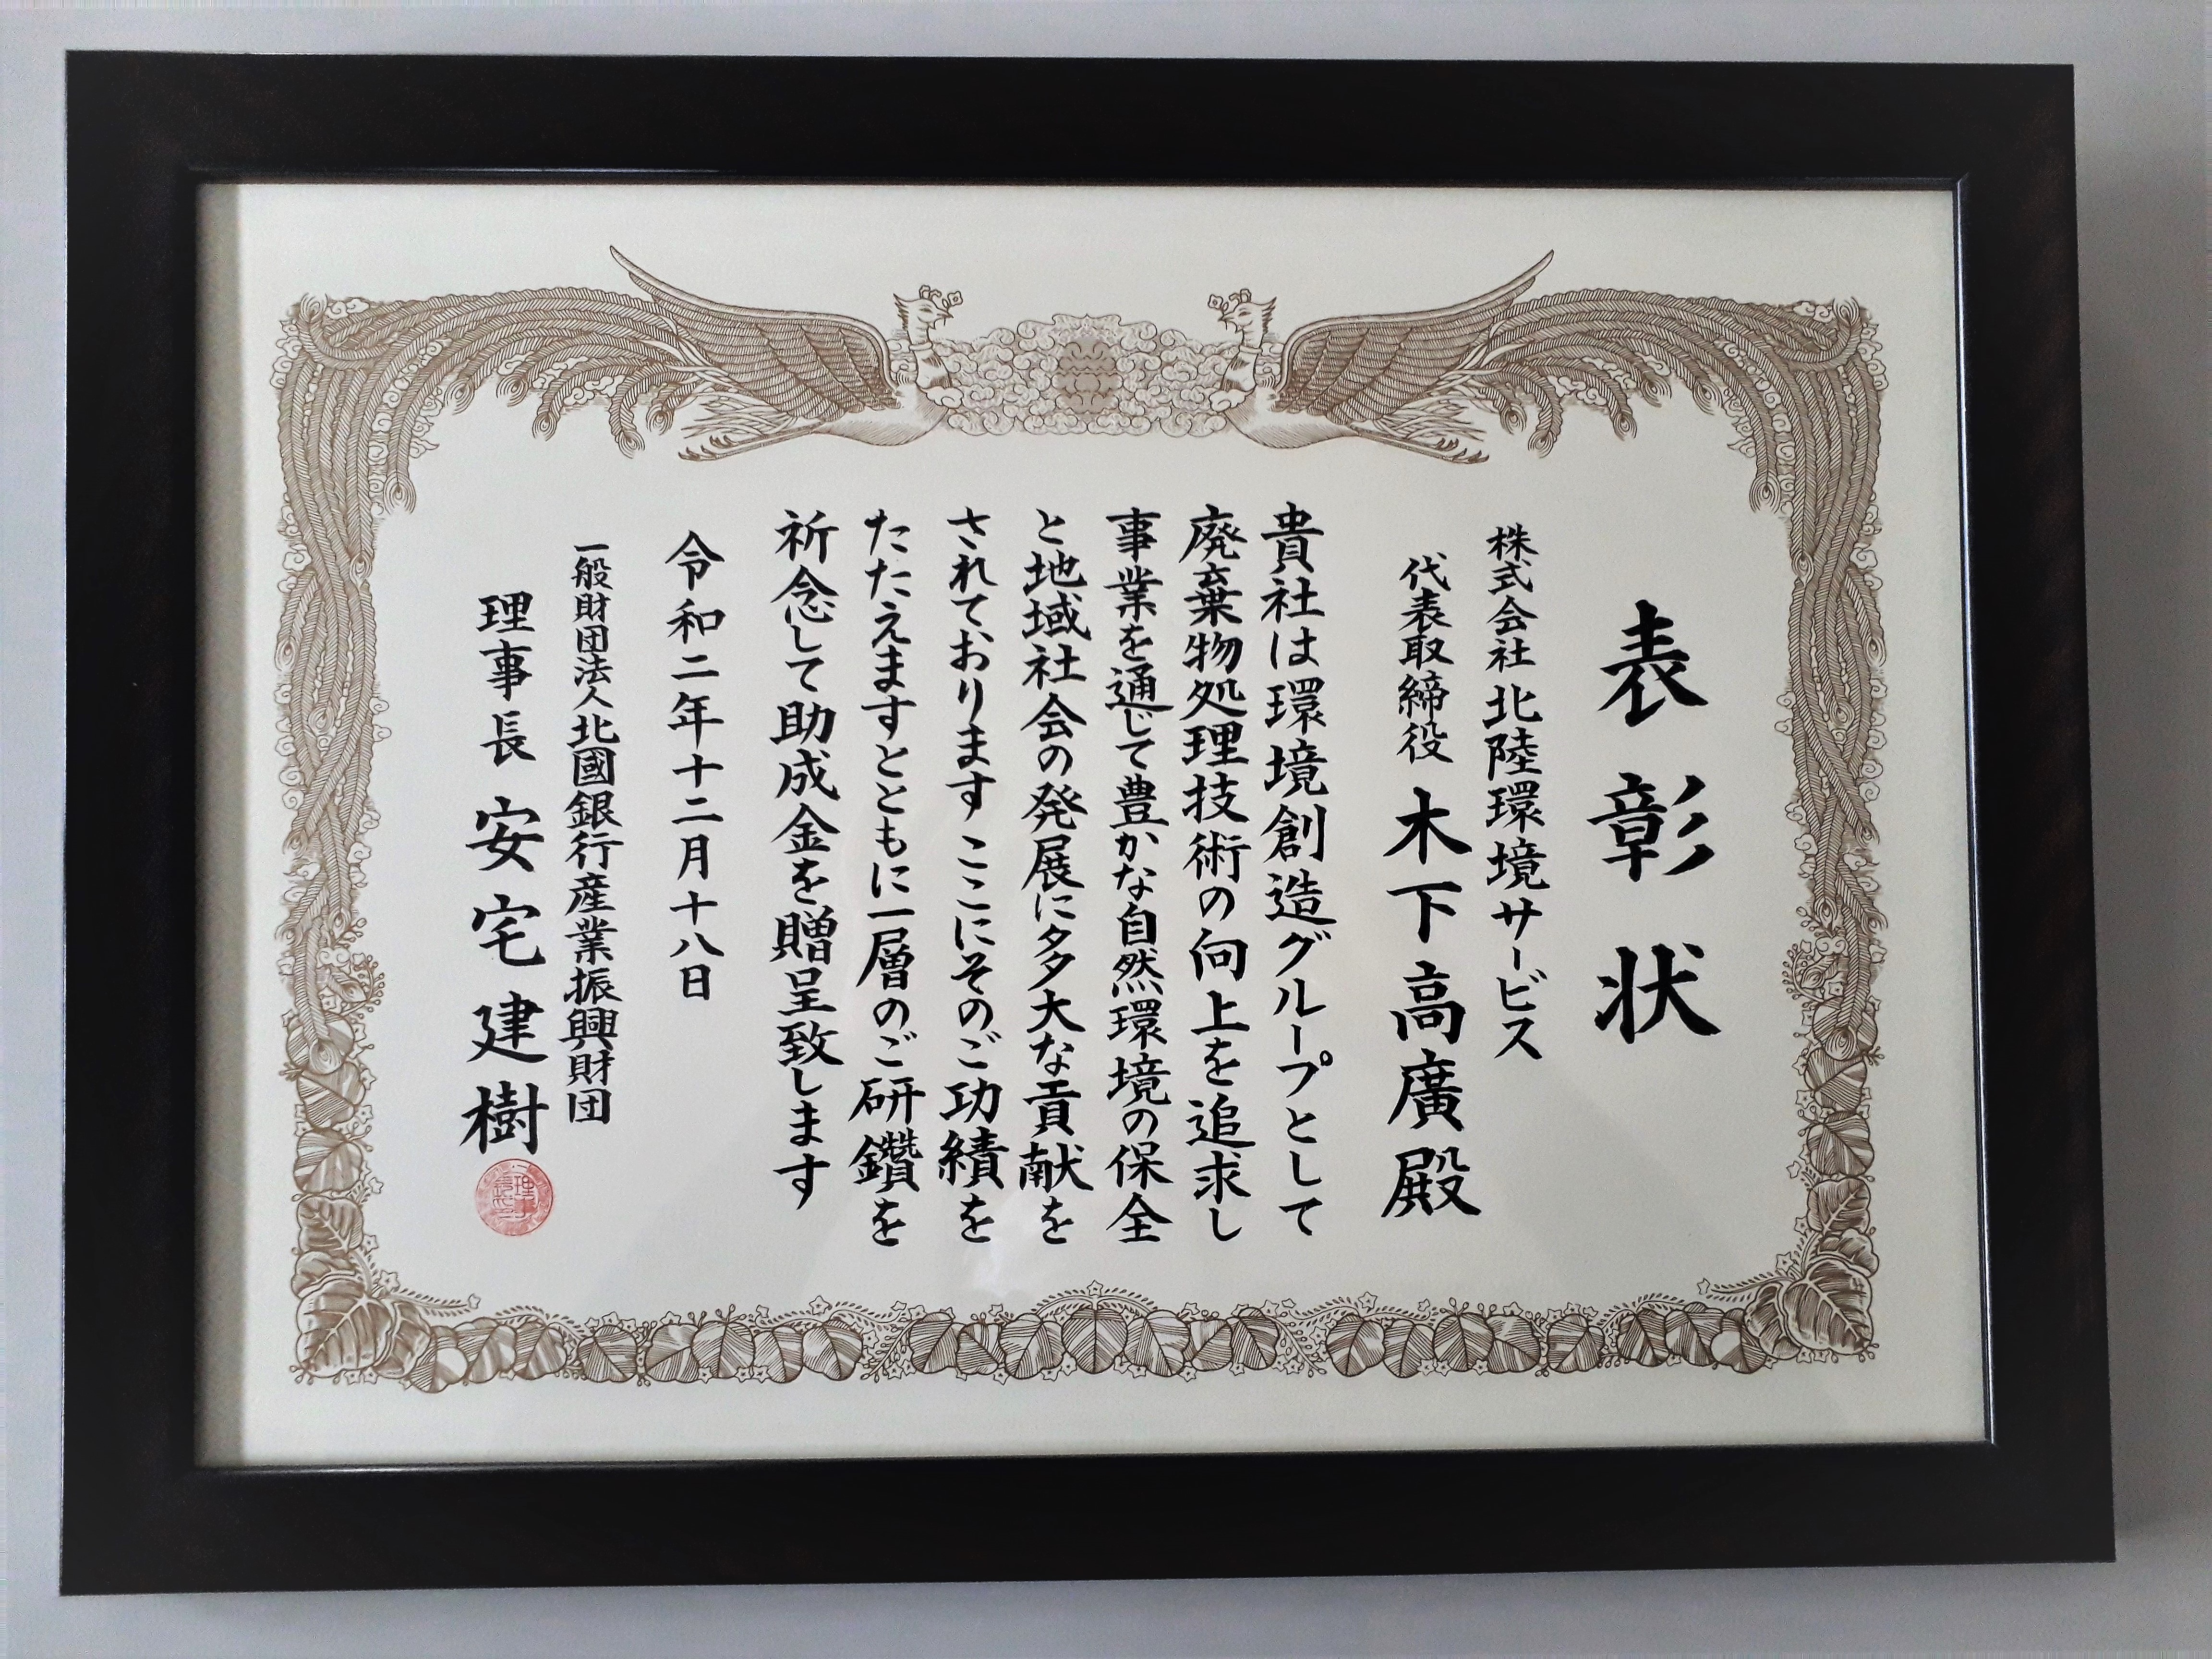 表彰状
株式会社 北陸環境サービス
代表取締役 木下高廣殿
貴社は環境創造グループとして
廃棄物処理技術の向上を追求し
事業を通じて豊かな自然環境の保全
と地域社会の発展に多大な貢献を
されております ここにそのご功績を
たたえますとともに一層のご研鑽を
祈念して助成金を贈呈致します
令和二年十二月十八日
一般財団法人北國銀行産業振興財団
理事長 安宅建樹